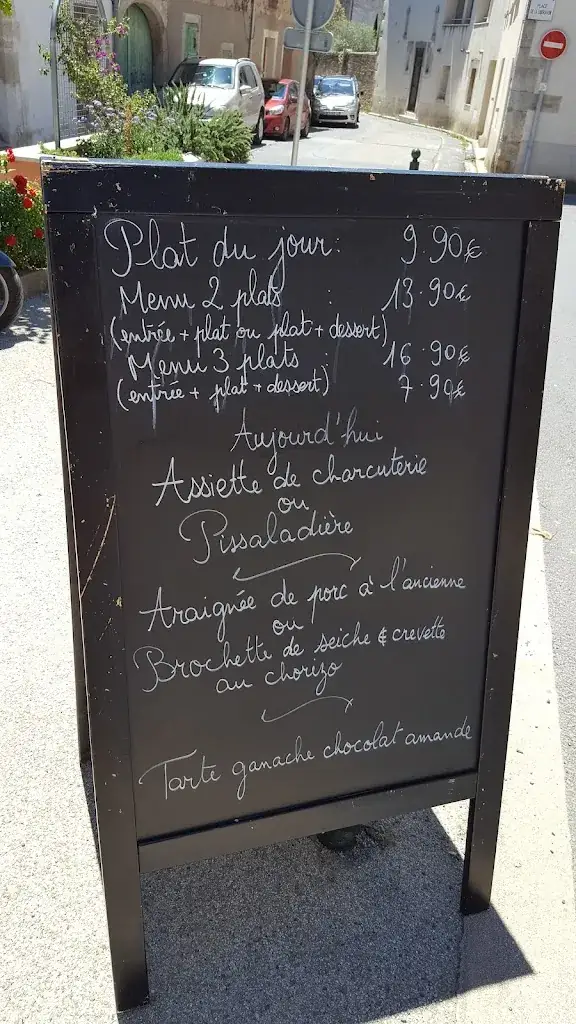 Plat du jour: 9.90€
Menu 2 plats : 13.90€
(entrée + plat ou plat + dessert)
Menu 3 plats : 16.90€
(entrée + plat + dessert) 7.90€
Aujourd'hui
Assiette de charcuterie
ou
Pissaladière
Araignée de porc à l'ancienne
ou
Brochette de seiche & crevette
au chorizo
Tarte ganache chocolat amande